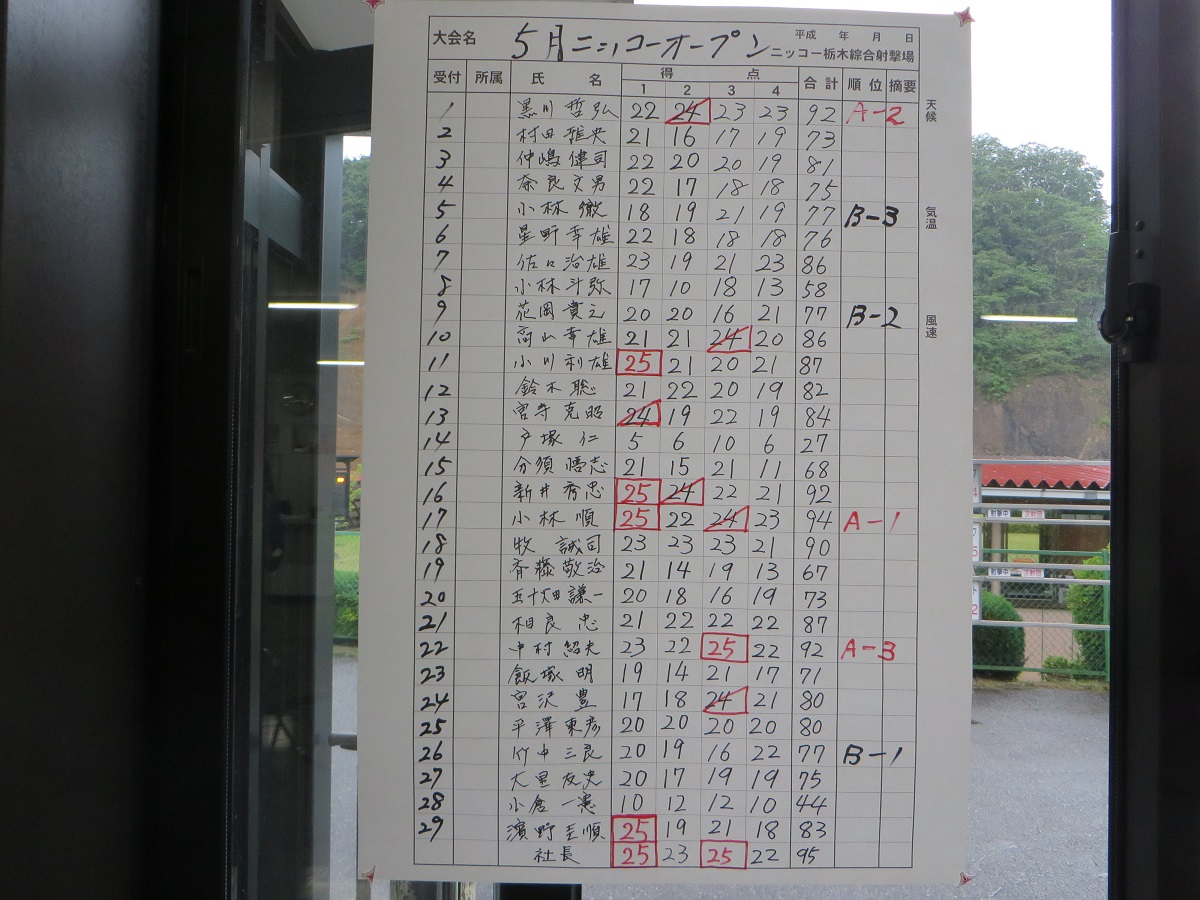 大会名 5月ニッコーオープン 平成 年 月 日
ニッコー栃木綜合射撃場
受付 所属 氏名 得点 合計 順位 摘要
1 2 3 4
1 黒川哲弘 22 24 23 23 92 A-2
2 村田雅央 21 16 17 19 73
3 仲嶋偉司 22 20 20 19 81
4 奈良文男 22 17 18 18 75
5 小林徹 18 19 21 19 77 B-3
6 星野幸雄 22 18 18 18 76
7 佐口治雄 23 19 21 23 86
8 小林斗弥 17 10 18 13 58
9 花岡貴之 20 20 16 21 77 B-2
10 高山幸雄 21 21 24 20 86
11 小川利雄 25 21 20 21 87
12 鈴木聡 21 22 20 19 82
13 宮寺克昭 24 19 22 19 84
14 戸塚仁 5 6 10 6 27
15 分須悟志 21 15 21 11 68
16 新井秀忠 25 24 22 21 92
17 小林順 25 22 24 23 94 A-1
18 牧誠司 23 23 23 21 90
19 斉藤敬治 21 14 19 13 67
20 五十畑謙一 20 18 16 19 73
21 相良忠 21 22 22 22 87
22 中村紹夫 23 22 25 22 92 A-3
23 飯塚明 19 14 21 17 71
24 宮沢豊 17 18 24 21 80
25 平澤東彦 20 20 20 20 80
26 竹中三良 20 19 16 22 77 B-1
27 大里友史 20 17 19 19 75
28 小倉一憲 10 12 12 10 44
29 濱野圭順 25 19 21 18 83
社長 25 23 25 22 95
天候
気温
風速